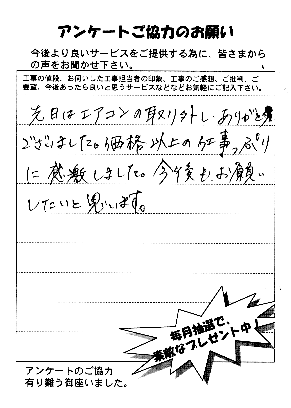 アンケートご協力のお願い
今後より良いサービスをご提供する為に、皆さまから
の声をお聞かせ下さい。
工事の値段、お伺いした工事担当者の印象、工事のご感想、ご批判、ご
要望、今後あったら良いと思うサービスなどなどお気軽にご記入下さい。
先日はエアコンの取り外し、ありがとう
ございました。価格以上の仕事っぷり
に感激しました。今後も、お願い
したいと思います。
毎月抽選で、
素敵なプレゼント中!
アンケートのご協力
有り難う御座いました。